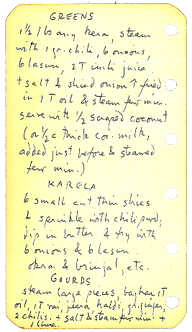 GREENS
1½ lbs any kera, steam
with 1 gr. chili, 6 onions,
6 lasun, 2 T imli juice
+ salt & sliced onion ↑ fried
in 1 T oil & steam few min.
serve with ½ scraped coconut
(or ½ c thick co. milk,
added just before & steamed
few min.)
KARELA
6 small cut thin slices
& sprinkle with chili powd.
dip in batter & fry with
6 onions & 6 lasun
okra & brinjal, etc.
GOURDS
steam large pieces, baghar it
oil, 1 T rai, jeera, haldi, gr. ginger,
2 chilis. + salt & steam few min. +
1 lime.